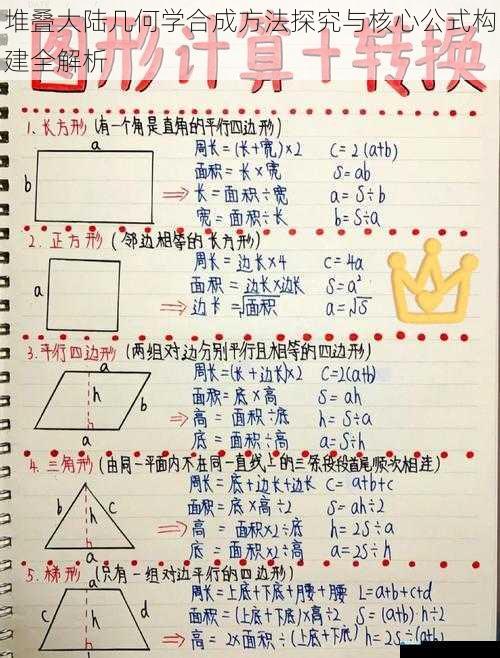 堆叠大陆几何学合成方法探究与核心公式构
建全解析
图形计算+转换
1.长方形(有一个角是直角的平行四边形)
a
b
周长=(长+宽)×2 C=2(a+b)
面积=长×宽 S=ab
⇒长=面积÷宽 a=S÷b
宽=面积÷长 b=S÷a
2.正方形(邻边相等的长方形)
a
周长=边长×4 C=4a
面积=边长×边长 S=a²
⇒边长=√面积 a=√S
3.平行四边形(两组对边分别平行且相等的四边形)
a
h
b
a
周长=(长+边长)×2 C=2(a+b)
面积=底×高 S=ah
⇒高=面积÷底 h=S÷a
底=面积÷高 a=S÷h
4.三角形(由同一平面内不在同一直线上的三条线段首尾顺次相连)
b
h
c
a
周长=底+边长+边长 C=a+b+c
面积=底×高÷2 S=ah÷2
⇒高=面积×2÷底 h=2S÷a
底=面积×2÷高 a=2S÷h
5.梯形(只有一组对边平行的四边形)
a
c
h
d
周长=上底+下底+腰+腰 L=a+b+c+d
面积=(上底+下底)×高÷2 S=(a+b)·h÷2
⇒高=2×面积÷(上底+下底) h=2S÷(a+b)